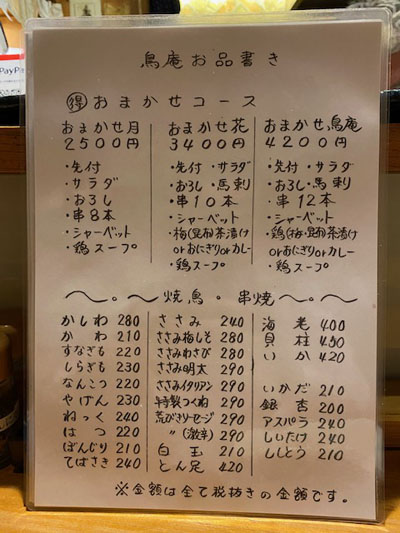 PayPay
鳥庵お品書き
得 おまかせコース
おまかせ月
2500円
・先付
・サラダ
・おろし
・串8本
・シャーベット
・鶏スープ
おまかせ花
3400円
・先付・サラダ
・おろし・馬刺
・串10本
・シャーベット
・梅(昆布)茶漬け
orおにぎりorカレー
・鶏スープ
おまかせ鳥庵
4200円
・先付・サラダ
・おろし・馬刺
・串12本
・シャーベット
・鶏(梅・昆布)茶漬け
orおにぎりorカレー
・鶏スープ
〜。〜焼鳥・串焼〜。〜
かしわ 280
かわ 210
すなぎも 220
しらぎも 230
なんこつ 220
やげん 230
ねっく 240
はつ 220
ぼんじり 210
てばさき 240
ささみ 240
ささみ梅しそ 280
ささみわさび 280
ささみ明太 290
ささみイタリアン 290
特製つくね 290
荒びきソーセージ 290
〃(激辛) 290
白玉 210
とん足 420
海老 400
貝柱 450
いか 420
いかだ 210
銀杏 200
アスパラ 240
しいたけ 240
ししとう 210
※金額は全て税抜きの金額です。